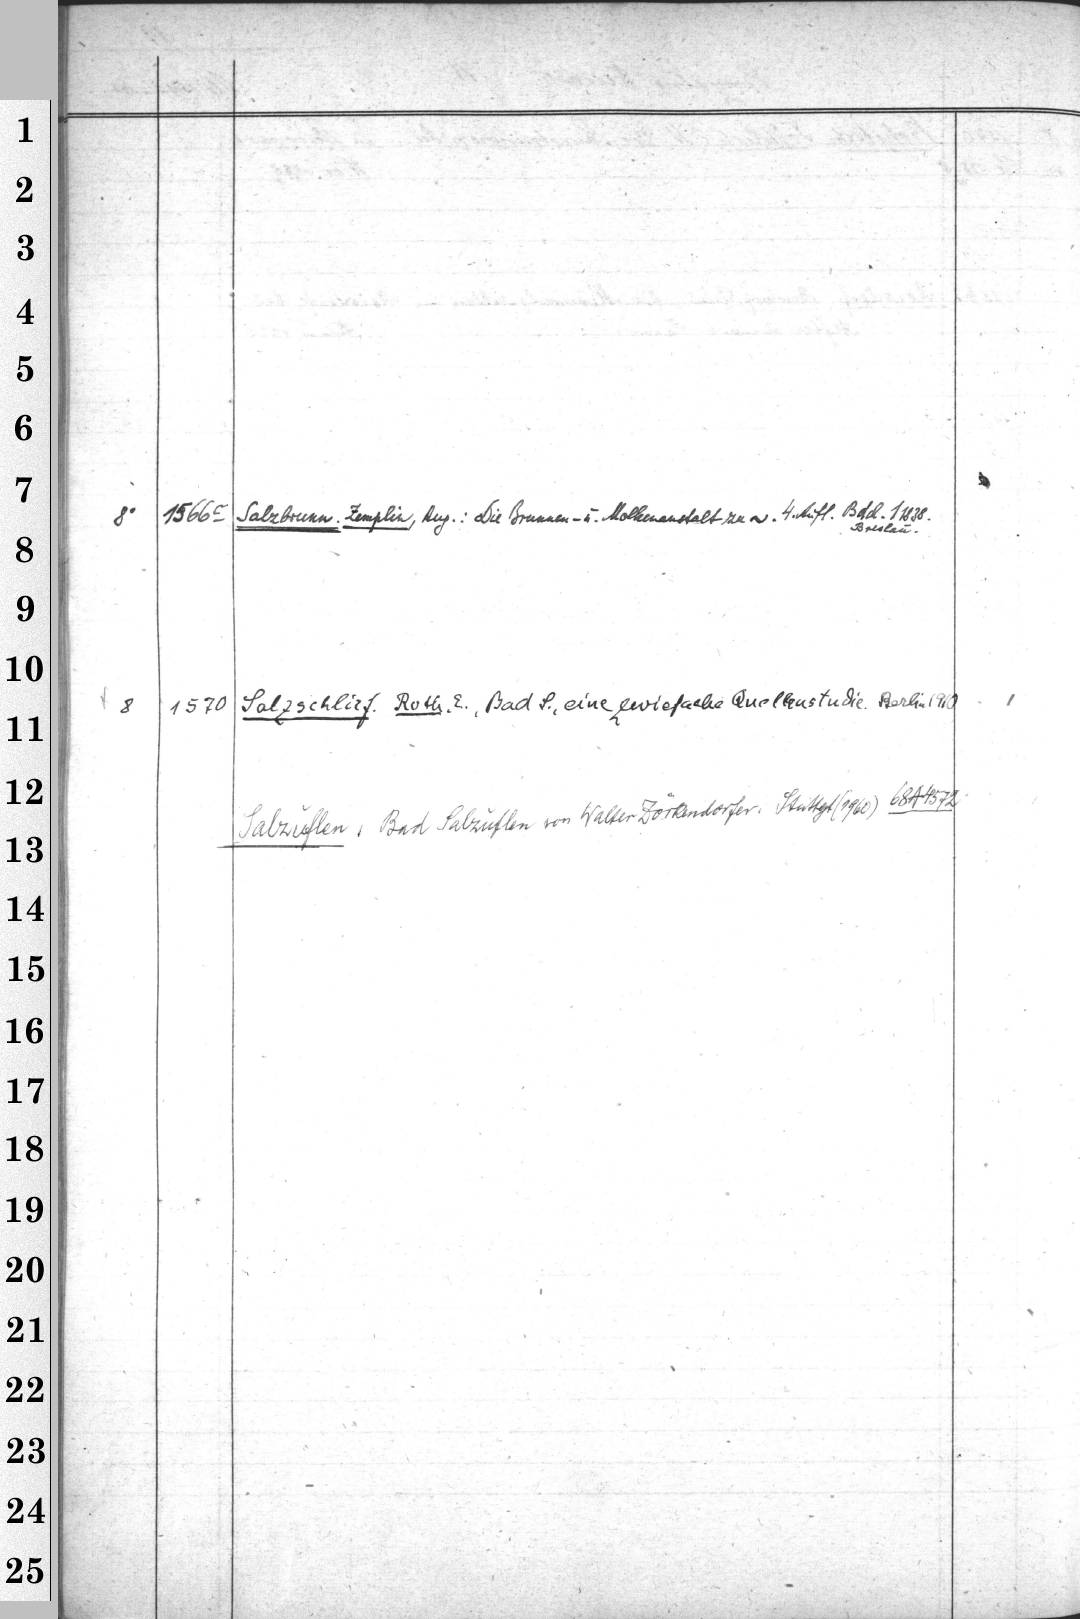 1
2
3
4
5
6
7
8° 1566c Salzbrunn. Zemplin, Aug.: Die Brunnen- u. Molkenanstalt zu ~. 4. Aufl. Bdd. 1 1838.
Breslau.
8
9
10
8 1570 Salzschlirf. Roth, E., Bad S., eine zwiefache Quellenstudie. Berlin 1910 1
11
12
Salzuflen, Bad Salzuflen von Walter Zörkendorfer. Stuttgt (1960) 68A1572
13
14
15
16
17
18
19
20
21
22
23
24
25